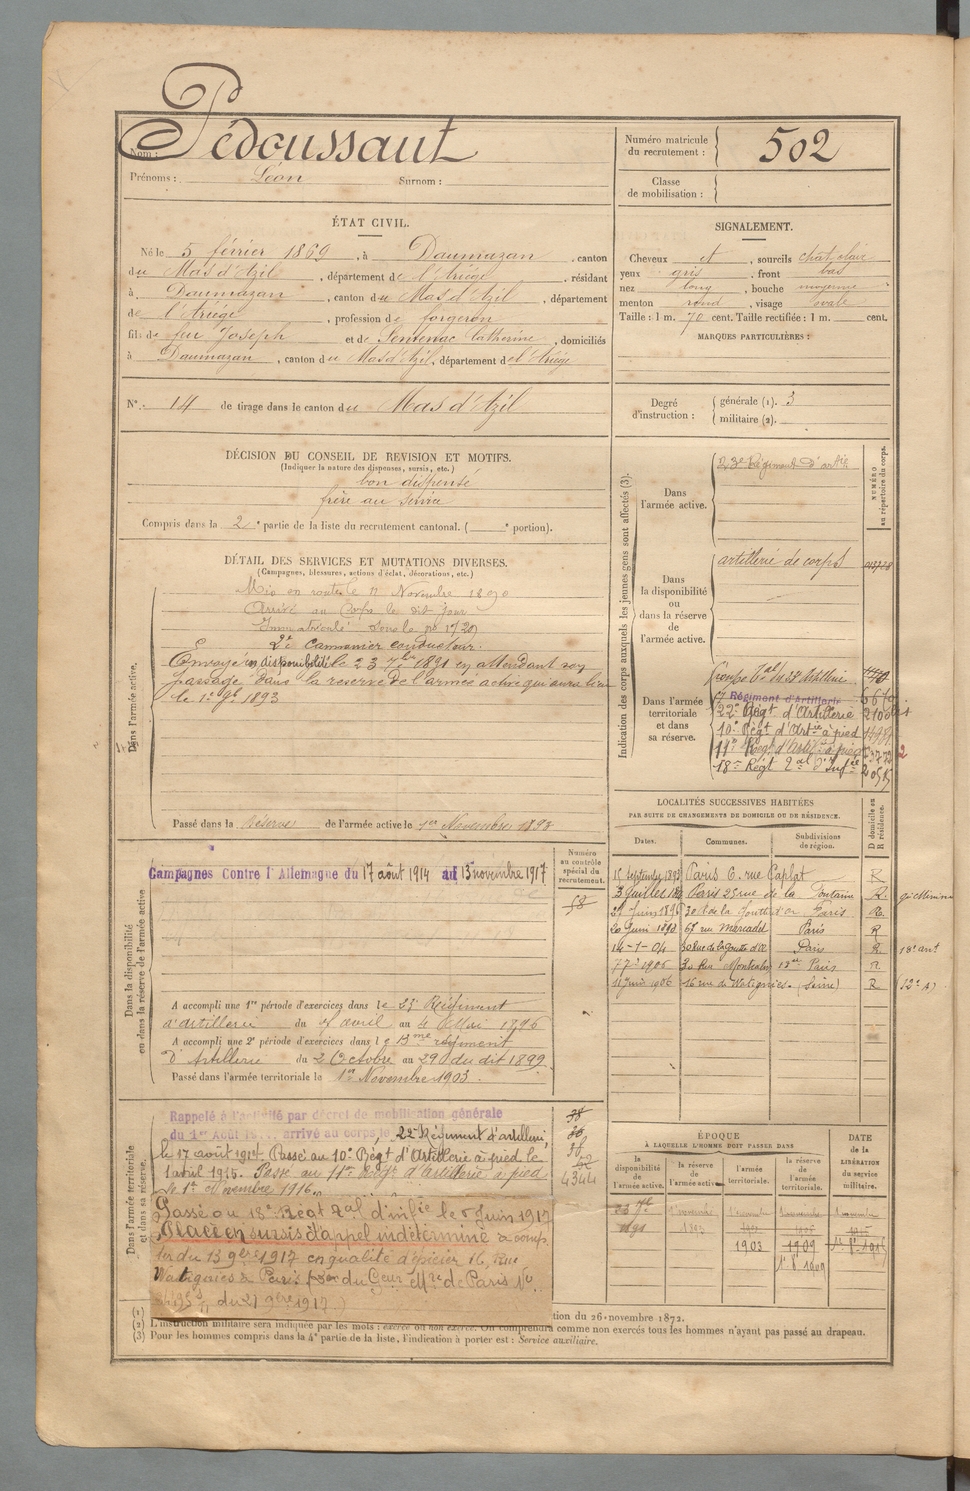 Nom : Pédoussaut
Prénoms : Léon Surnom :
Numéro matricule du recrutement : 502
Classe de mobilisation :
ÉTAT CIVIL.
Né le 5 février 1869, à Daumazan, canton
du Mas d'Azil, département de l'Ariège, résidant
à Daumazan, canton du Mas d'Azil, département
de l'Ariège, profession de forgeron
fils de feu Joseph et de Sentenac Catherine, domiciliés
à Daumazan, canton du Mas d'Azil, département de l'Ariège
N° 14 de tirage dans le canton du Mas d'Azil
SIGNALEMENT.
Cheveux et, sourcils chat. clair
yeux gris, front bas
nez long, bouche moyenne
menton rond, visage ovale
Taille : 1 m. 70 cent. Taille rectifiée : 1 m. cent.
MARQUES PARTICULIÈRES :
Degré d'instruction : générale (1). 3
militaire (2).
DÉCISION DU CONSEIL DE REVISION ET MOTIFS.
(Indiquer la nature des dispenses, sursis, etc.)
bon dispensé
frère au service
Compris dans la 2e partie de la liste du recrutement cantonal. ( e portion).
DÉTAIL DES SERVICES ET MUTATIONS DIVERSES.
(Campagnes, blessures, actions d'éclat, décorations, etc.)
Dans l'armée active.
Mis en route le 11 Novembre 1890
Arrivé au Corps le dit jour
Immatriculé sous le no
2e Cannonier conducteur.
Envoyé en disponibilité le 23 7bre 1891 en attendant son
passage dans la réserve de l'armée active qui aura lieu
le 1er 9bre 1893
Passé dans la réserve de l'armée active le 1er Novembre 1893
Indication des corps auxquels les jeunes gens sont affectés (3).
NUMÉRO au répertoire du corps.
Dans l'armée active.
23e Régiment d'artie
Dans la disponibilité ou dans la réserve de l'armée active.
artillerie de corps
Dans l'armée territoriale et dans sa réserve.
Régiment d'Artillerie
22e Régt d'Artillerie
10e Régt d'Artie à pied
11e Régt d'Artie à pied
18e Régt Tal d'Infie
LOCALITÉS SUCCESSIVES HABITÉES
PAR SUITE DE CHANGEMENTS DE DOMICILE OU DE RÉSIDENCE.
Dates. Communes. Subdivisions de région. D domicile ou R résidence.
15 Septembre 1893 Paris 6. rue Caplat R
3 juillet Paris 25 rue de la Fontaine R.
27 Juin 1896 30 r. de la Goutte d'or Paris R.
20 Juin 1898 67 rue Marcadet Paris R
14-1-04 30 Rue de la Goutte d'Or Paris R 18e arrt
1906 30 Rue 12e Paris R
1906 16 rue de Watignies. (Seine) R (12e A)
Dans la disponibilité ou dans la réserve de l'armée active
Campagnes Contre l'Allemagne du 17 août 1914 au 13 novembre 1917
Numéro au contrôle spécial du recrutement.
58
A accompli une 1re période d'exercices dans le 23e Régiment
d'artillerie du 7 avril au 4 Mai 1896
A accompli une 2e période d'exercices dans le me régiment
d'Artillerie du 2 Octobre au 29 du dit 1899
Passé dans l'armée territoriale le 1er Novembre 1903.
Dans l'armée territoriale et dans sa réserve.
Rappelé à l'activité par décret de mobilisation générale
du 1er Août arrivé au corps le 22e Régiment d'artillerie,
le 17 août 1914. Passé au 10e Régt d'Artillerie à pied le
1 avril 1915. Passé au 11e Régt d'artillerie à pied
le 1er Novembre 1916
4344
Passé au 18e Régt Tal d'infie le 8 Juin 1917
Placé en sursis d'appel indéterminé à comp
ter du 13 9bre 1917 en qualité d'épicier 16, Rue
Watignies à Paris par du Gour Mre de Paris No
du 27 9bre 1917
ÉPOQUE
À LAQUELLE L'HOMME DOIT PASSER DANS
la disponibilité de l'armée active. la réserve de l'armée active. l'armée territoriale. la réserve de l'armée territoriale.
DATE de la LIBÉRATION du service militaire.
23 7bre 1891
1 novembre 1893
1903
1909
(1)
tion du 26 novembre 1872.
(2) L'instruction militaire sera indiquée par les mots : exercé ou non exercé. On comprendra comme non exercés tous les hommes n'ayant pas passé au drapeau.
(3) Pour les hommes compris dans la 4e partie de la liste, l'indication à porter est : Service auxiliaire.